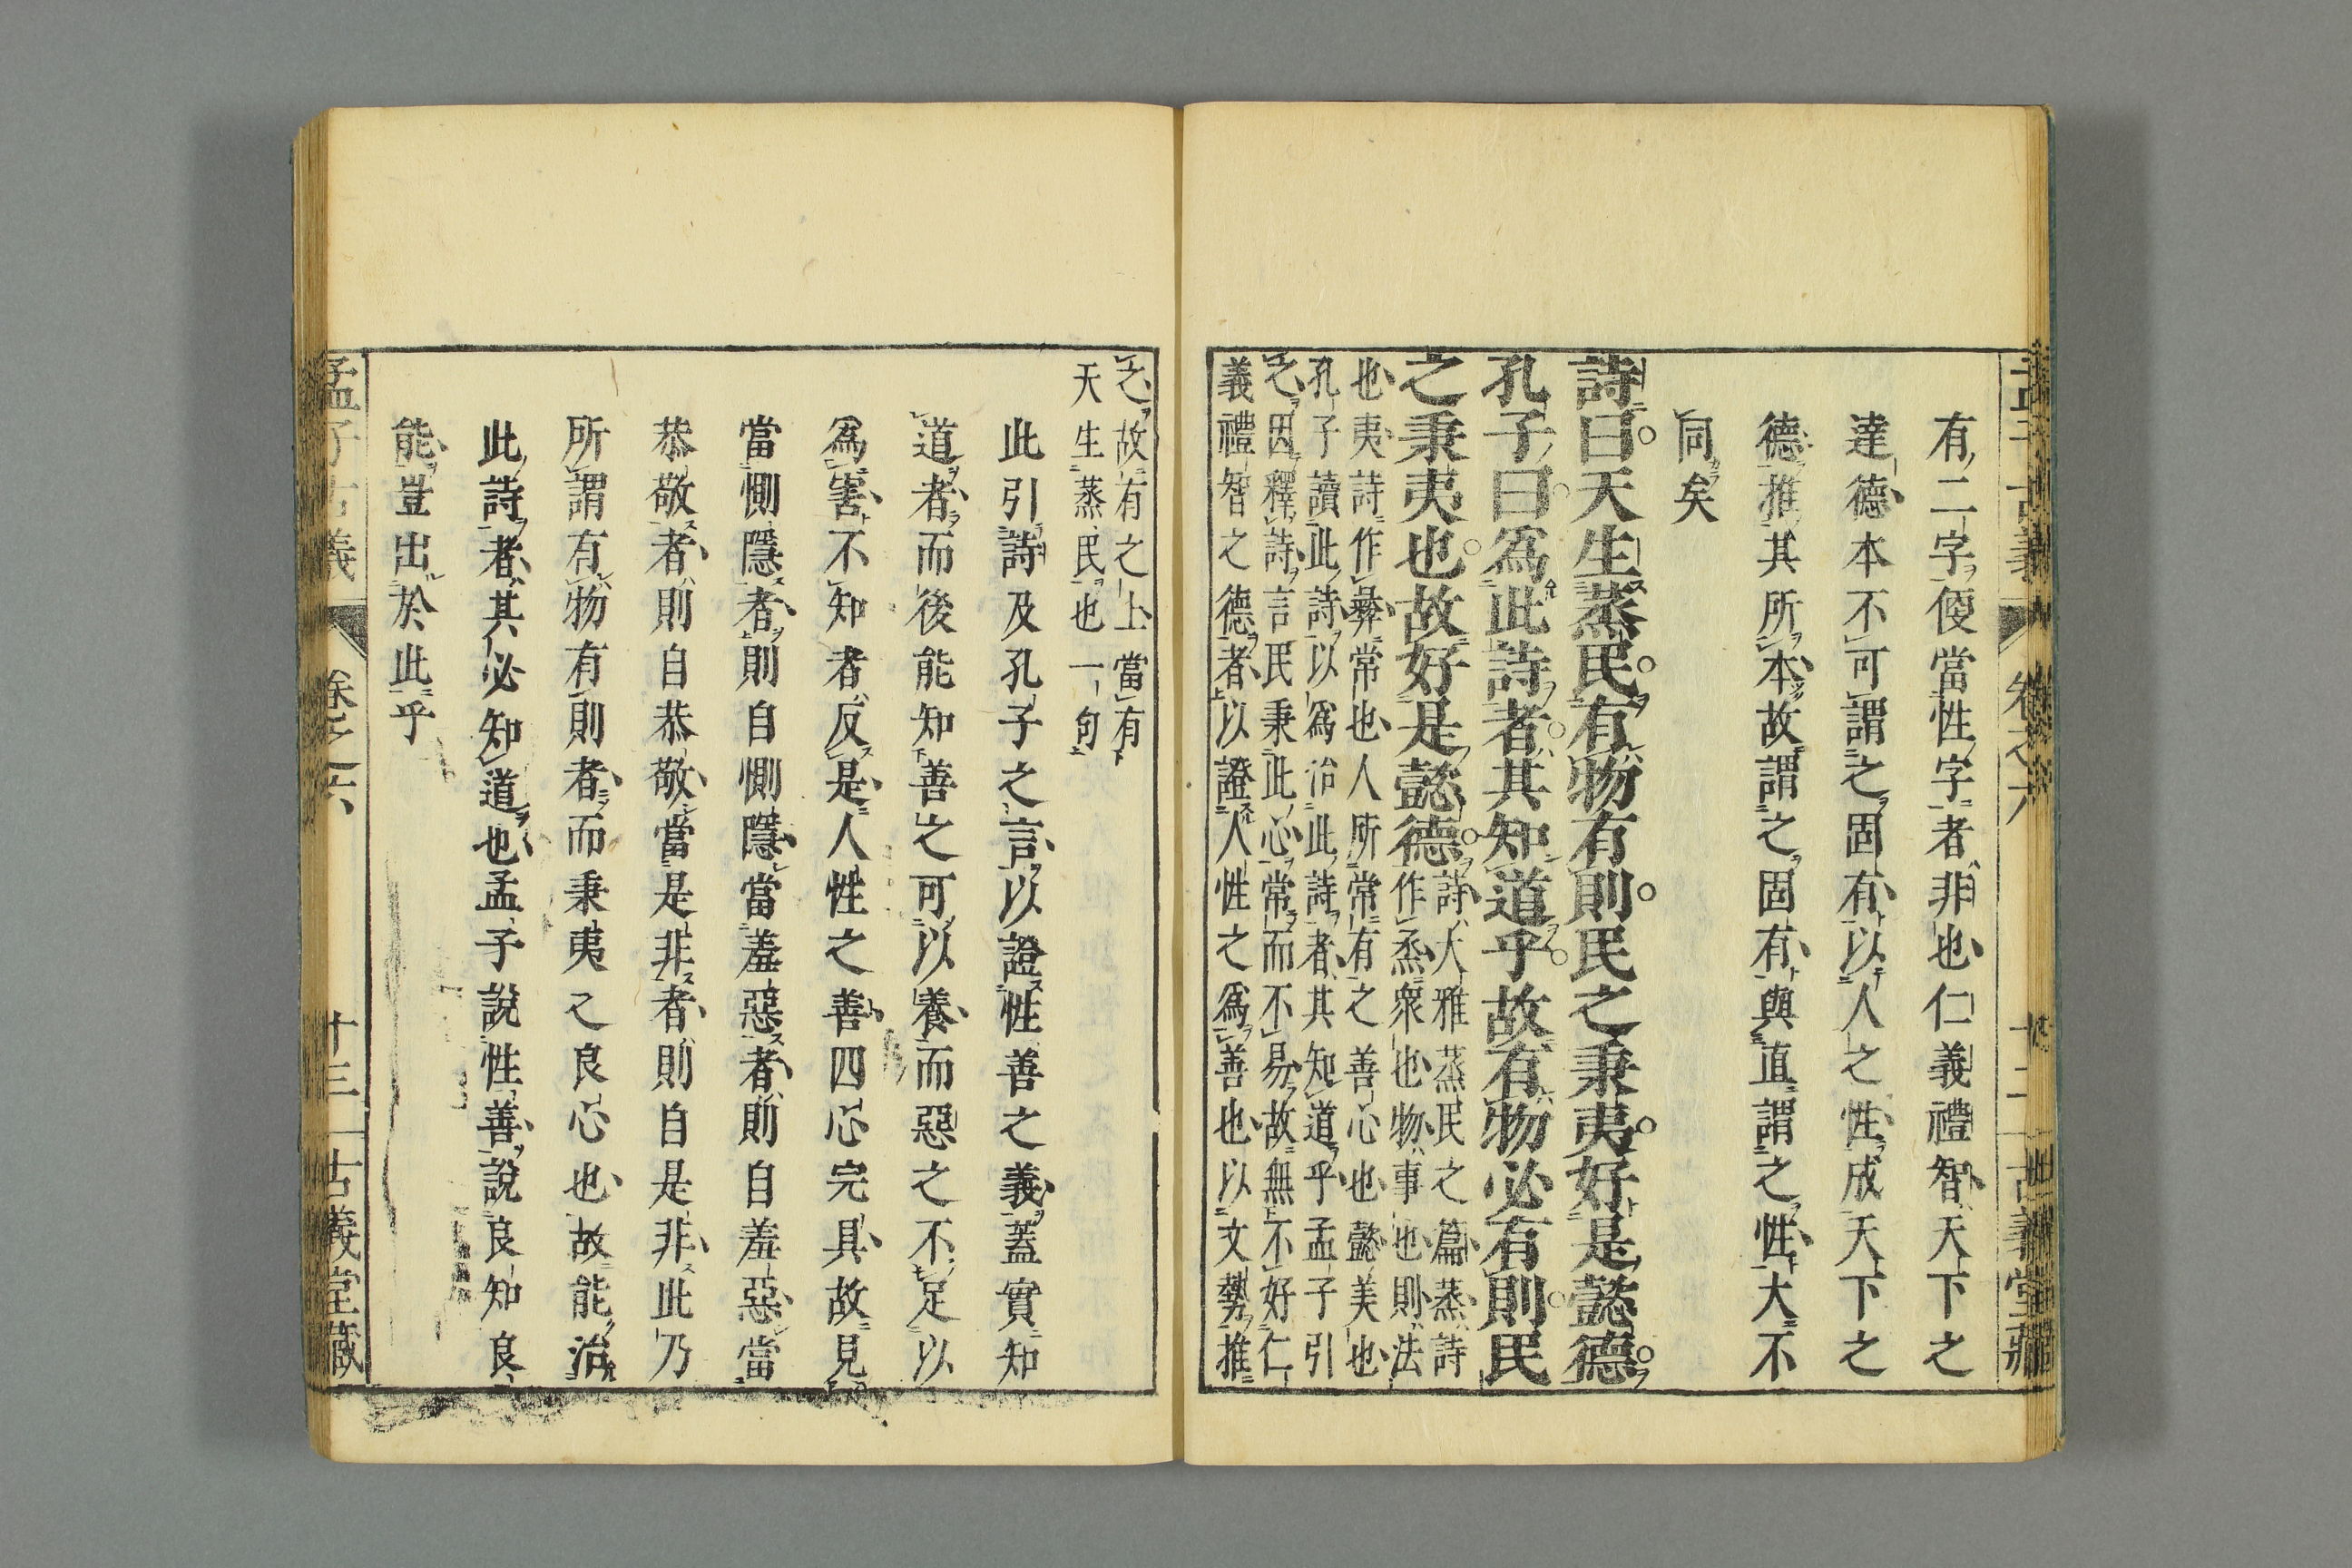 有二字便當性字者非也仁義禮智天下之
達德本不可謂之固有以人之性成天下之
德推其所本故謂之固有與直謂之性大不
同矣
詩曰天生蒸民有物有則民之秉夷好是懿德
孔子曰爲此詩者其知道乎故有物必有則民
之秉夷也故好是懿德
詩大雅蒸民之篇蒸詩
作烝衆也物事也則法
也夷詩作彝常也人所常有之善心也懿美也
孔子讀此詩以爲治此詩者其知道乎孟子引
之因釋詩言民秉此心常而不易故無不好仁
義禮智之德者以證人性之爲善也以文勢推
之故有之上當有
天生蒸民也一句
此引詩及孔子之言以證性善之義蓋實知
道者而後能知善之可以養而惡之不足以
爲害不知者反是人性之善四心完具故見
當惻隱者則自惻隱當羞惡者則自羞惡當
恭敬者則自恭敬當是非者則自是非此乃
所謂有物有則者而秉夷之良心也故能治
此詩者其必知道也孟子說性善說良知良
能豈出於此乎
孟子古義 卷之六 十三 古義堂藏